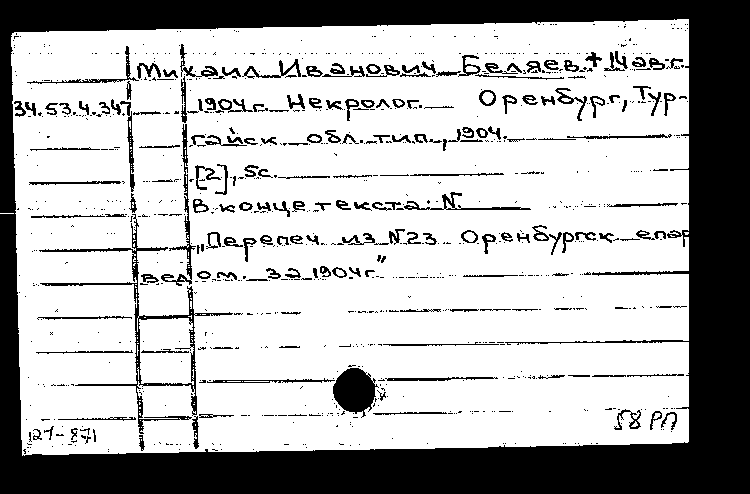 Михаил Иванович Беляев † 14 авг.
34.53.4.347 1904г. Некролог. Оренбург, Тур-
гайск. обл. тип., 1904.
[2], 5с.
В конце текста: N.
„Перепеч. из N23 Оренбургск епар
ведом. за 1904г"
121-871
58 РП